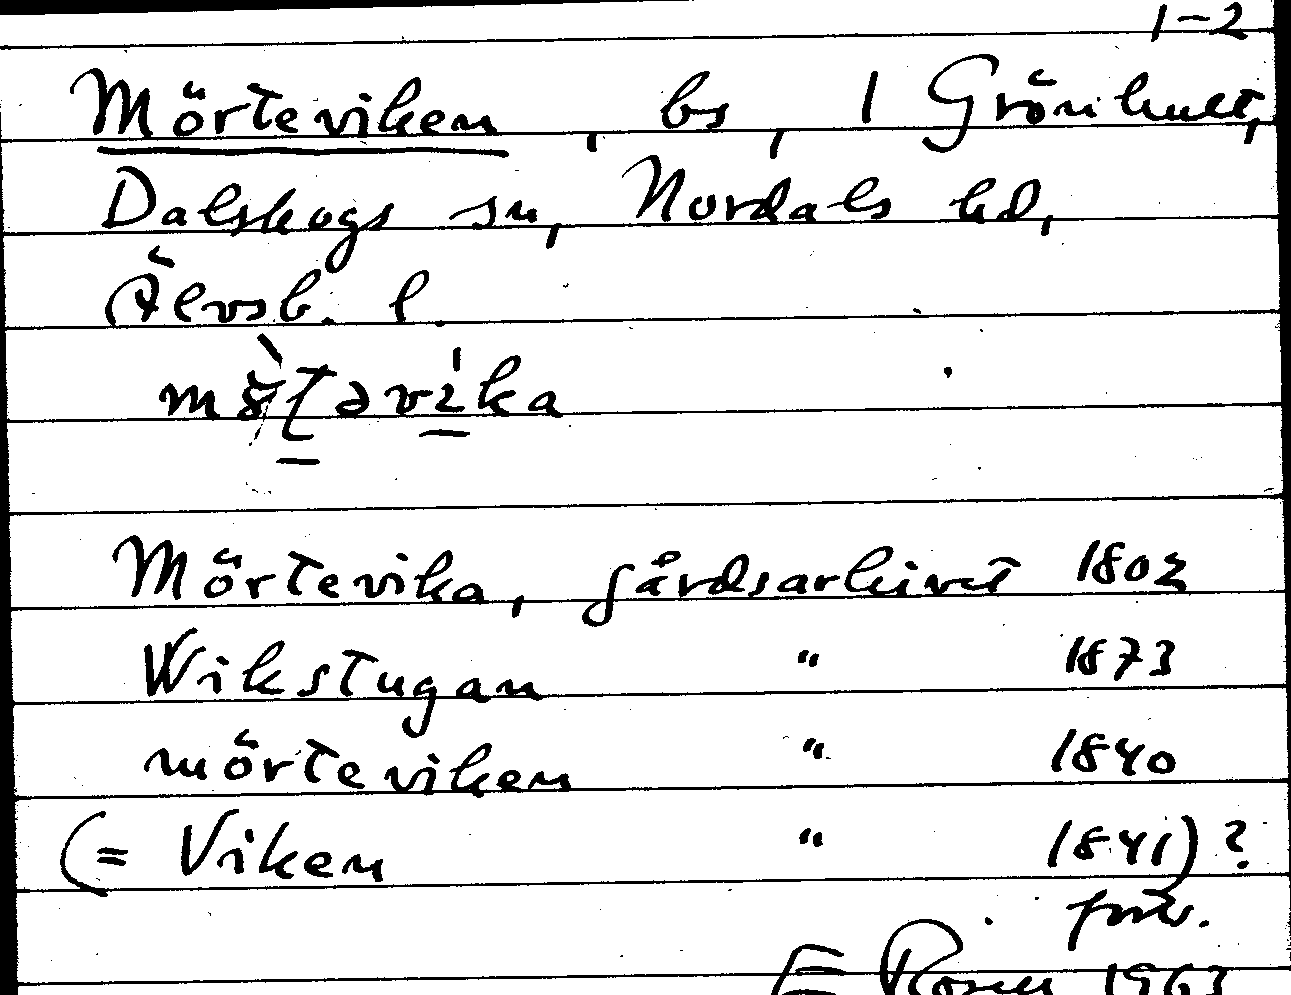 1-2
Mörteviken, bs, 1 Grönhult,
Dalskogs sn, Nordals hd,
Älvsb. l.
Mörtevika, gårdsarkivet 1802
Wikstugan " 1873
mörteviken " 1840
(= Viken " 1841)?
E Rosell 1963